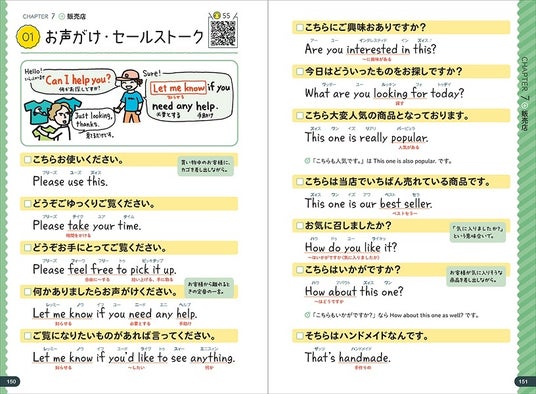 CHAPTER 7 販売店
01 お声がけ・セールストーク
55
Hello!
Can I help you?
何かお探しですか?
Sure!
Let me know if you
知らせる
need any help.
必要とする 手助け
Just looking,
thanks.
見てるだけです。
こちらお使いください。
プリーズ ユーズ ズィス
Please use this.
買い物中のお客様に、
カゴを差し出しながら。
どうぞごゆっくりご覧ください。
プリーズ テイク ユア タイム
Please take your time.
時間をかける
どうぞお手にとってご覧ください。
プリーズ フィーゥ フリー トゥ ピッキタップ
Please feel free to pick it up.
自由に~する 拾い上げる、手に取る
何かありましたらお声がけください。
お客様から離れると
きの定番の一言。
レッミー ノウ イフ ユー ニード エニ ヘルプ
Let me know if you need any help.
知らせる 必要とする 手助け
ご覧になりたいものがあれば言ってください。
Let me know if you'd like to see anything.
知らせる ~したい 何か
150
CHAPTER 7 販売店
こちらにご興味おありですか?
Are you interested in this?
~に興味がある
今日はどういったものをお探しですか?
What are you looking for today?
探す
こちら大変人気の商品となっております。
This one is really popular.
人気がある
「こちらも人気です。」は This one is also popular. です。
こちらは当店でいちばん売れている商品です。
This one is our best seller.
ベストセラー
お気に召しましたか?
「気に入りましたか?」
という意味合いで。
How do you like it?
~はいかがですか(気に入りましたか)
こちらはいかがですか?
お客様が気に入りそうな
商品を差し出しながら。
How about this one?
~はどうですか
「こちらもいかがですか?」なら How about this one as well? です。
そちらはハンドメイドなんです。
That's handmade.
手作りの
151